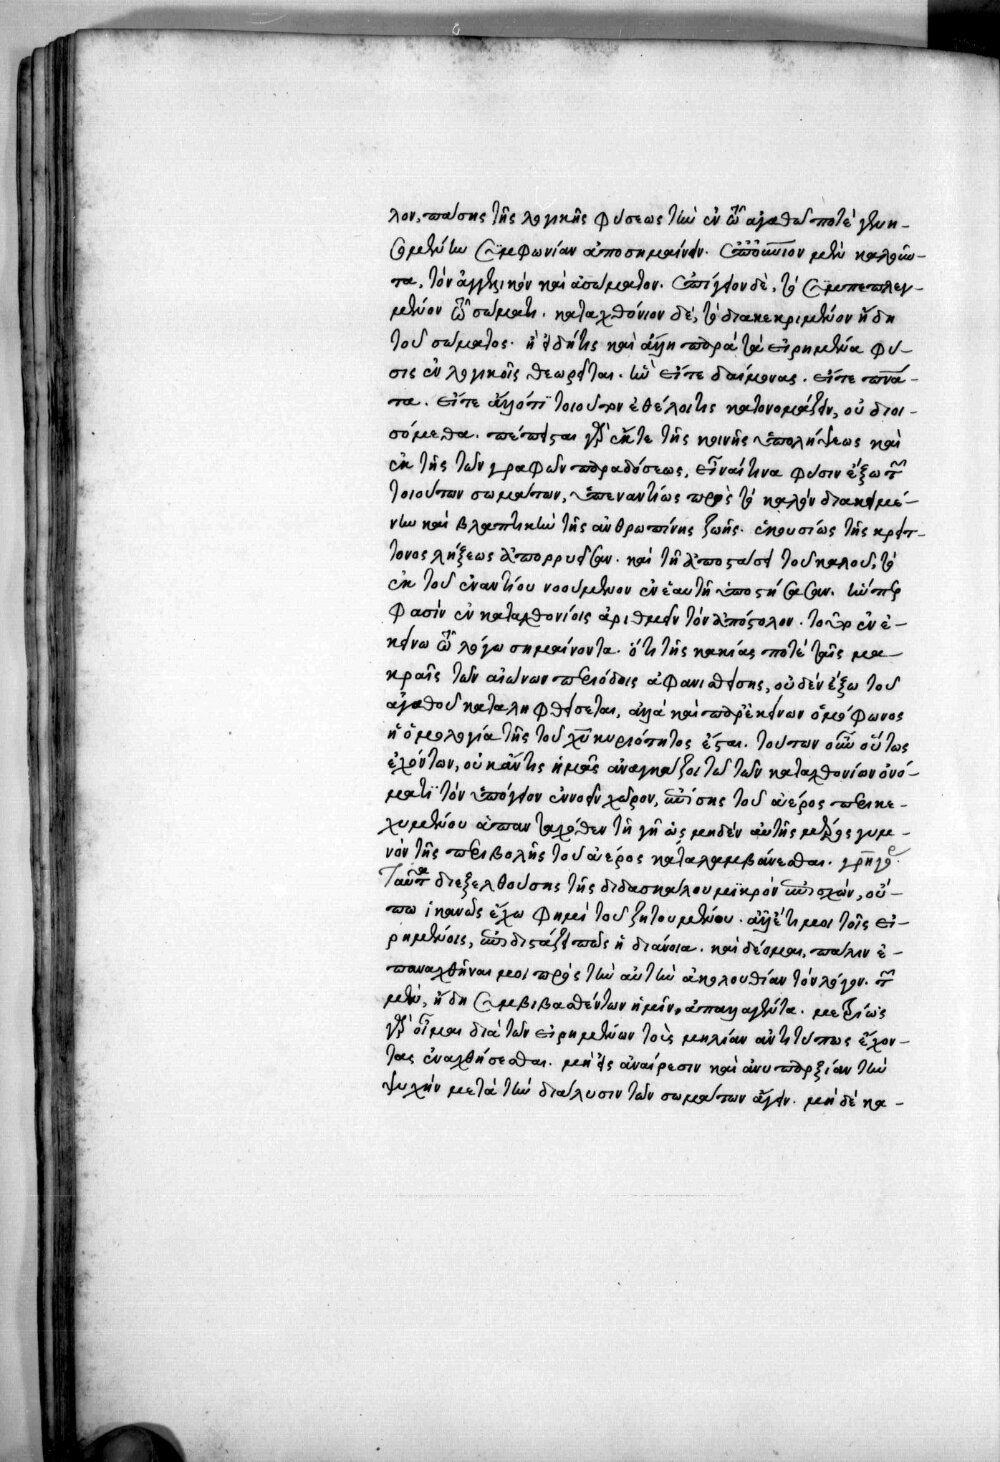 λον, πάσης τῆς λογικῆς φύσεως τὴν ἐν τῷ ἀγαθῷ ποτὲ γενη-
σομένην συμφωνίαν ἀποσημαίνειν. ἐπουράνιον μὲν καλοῦν-
τα, τὸν ἀγγελικόν καὶ ἀσώματον. ἐπίγειον δὲ, τὸ συμπεπλεγ-
μένον τῷ σώματι. καταχθόνιον δὲ, τὸ διακεκριμένον ἤδη
τοῦ σώματος. ἢ εἰ δή τις καὶ ἄλλη παρὰ τὰ εἰρημένα φύ-
σις ἐν λογικοῖς θεωρεῖται. ἣν εἴτε δαίμονας. εἴτε πνεύμα-
τα. εἴτε ἄλλό τι τοιοῦτον ἐθέλοι τις κατονομάζειν, οὐ διοι-
σόμεθα. πεπίστευται γὰρ ἔκ τε τῆς κοινῆς ὑπολήψεως καὶ
ἐκ τῆς τῶν γραφῶν παραδόσεως, εἶναί τινα φύσιν ἔξω τῶν
τοιούτων σωμάτων, ὑπεναντίως πρὸς τὸ καλὸν διακειμέ-
νην καὶ βλαπτικὴν τῆς ἀνθρωπίνης ζωῆς. ἑκουσίως τῆς κρείτ-
τονος λήξεως ἀπορρυεῖσαν. καὶ τῇ ἀποστάσει τοῦ καλοῦ, τὸ
ἐκ τοῦ ἐναντίου νοούμενον ἐν ἑαυτῇ ὑποστήσασαν. ἥνπερ
φασὶν ἐν καταχθονίοις ἀριθμεῖν τὸν ἀπόστολον. τοῦτο ἐν ἐ-
κείνῳ τῷ λόγῳ σημαίνοντα. ὅτι τῆς κακίας ποτὲ ταῖς μα-
κραῖς τῶν αἰώνων περιόδοις ἀφανισθείσης, οὐδὲν ἔξω τοῦ
ἀγαθοῦ καταληφθήσεται, ἀλλὰ καὶ παρ' ἐκείνων ὁμόφωνος
ἡ ὁμολογία τῆς τοῦ χυ κυριότητος ἔσται. τούτων οὖν οὕτως
ἐχόντων, οὐκἄν τις ἡμᾶς ἀναγκάζοι τῷ τῶν καταχθονίων ὀνό-
ματι τὸν ὑπόγειον ἐννοεῖν χῶρον, ἐπίσης τοῦ ἀέρος περικε-
χυμένου ἁπανταχόθεν τῇ γῇ ὡς μηδὲν αὐτῆς μέρος γυμ-
νὸν τῆς περιβολῆς τοῦ ἀέρος καταλαμβάνεσθαι. γρηγό
Ταῦτα διεξελθούσης τῆς διδασκάλου μικρὸν ἐπισχὼν, οὔ-
πω ἱκανῶς ἔχω φημὶ τοῦ ζητουμένου. ἀλλ' ἔτι μοι τοῖς εἰ-
ρημένοις, ἐπιδιστάζει πῶς ἡ διάνοια. καὶ δέομαι, πάλιν ἐ-
παναχθῆναί μοι πρὸς τὴν αὐτὴν ἀκολουθίαν τὸν λόγον. τῶν
μὲν, ἤδη συμβιβασθέντων ἡμῖν, ἀπαλλαγέντα. μετρίως
γὰρ οἶμαι διὰ τῶν εἰρημένων τοὺς μὴ λίαν ἀντιτύπως ἔχον-
τας ἐναχθήσεσθαι. μὴ εἰς ἀναίρεσιν καὶ ἀνυπαρξίαν τὴν
ψυχὴν μετὰ τὴν διάλυσιν τῶν σωμάτων ἄγειν. μὴ δὲ κα-